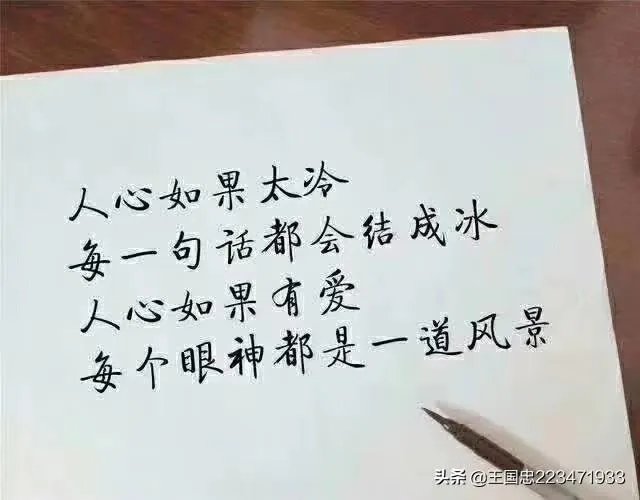 人心如果太冷
每一句话都会结成冰
人心如果有爱
每个眼神都是一道风景
头条 @王国忠223471933